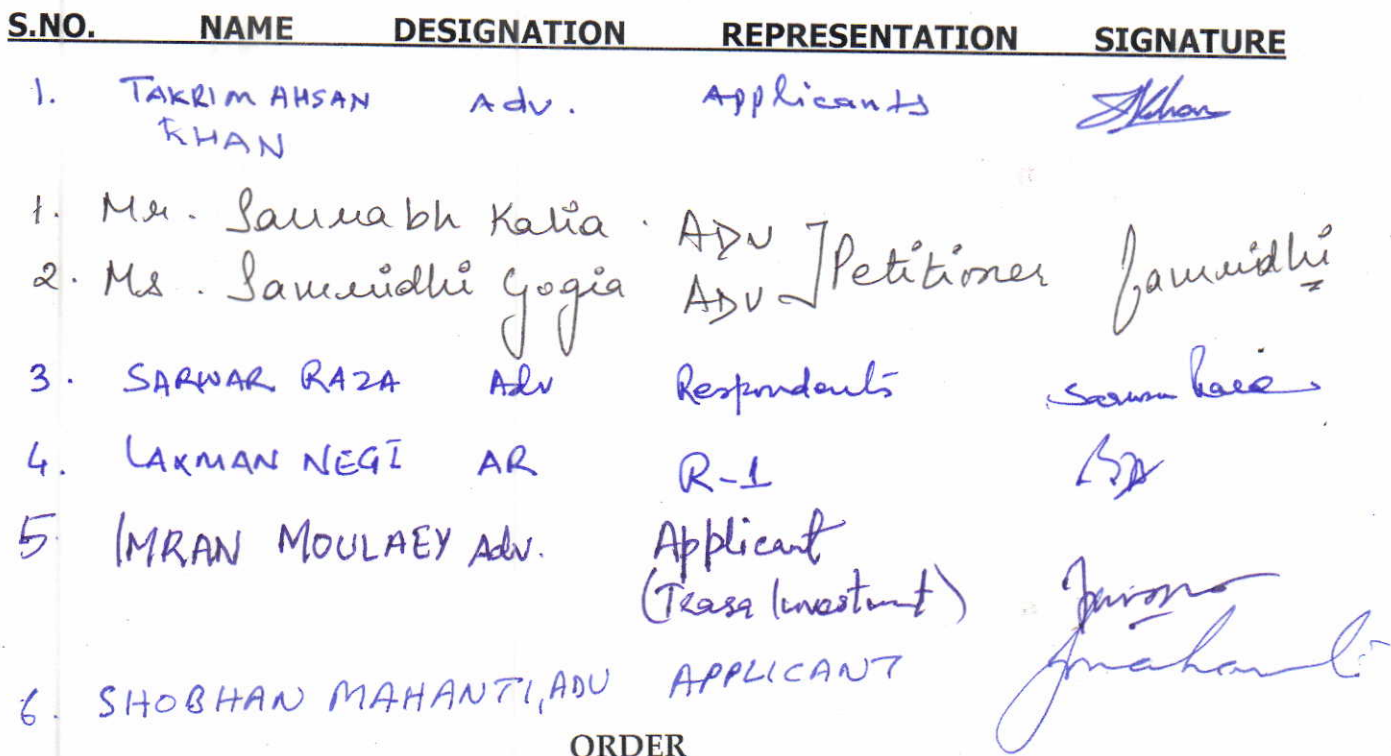 S.NO. NAME DESIGNATION REPRESENTATION SIGNATURE
1. TAKRIM AHSAN Adv. Applicants Khan
KHAN
1. Mr. Saurabh Kalia. ADV
2. Ms. Samridhi Gogia ADV Petitioner Samridhi
3. SARWAR RAZA Adv Respondents Sarwar Raza
4. LAXMAN NEGI AR R-1
5. IMRAN MOULAEY Adv. Applicant
(Teasa Investment)
6. SHOBHAN MAHANTI, ADV APPLICANT
ORDER